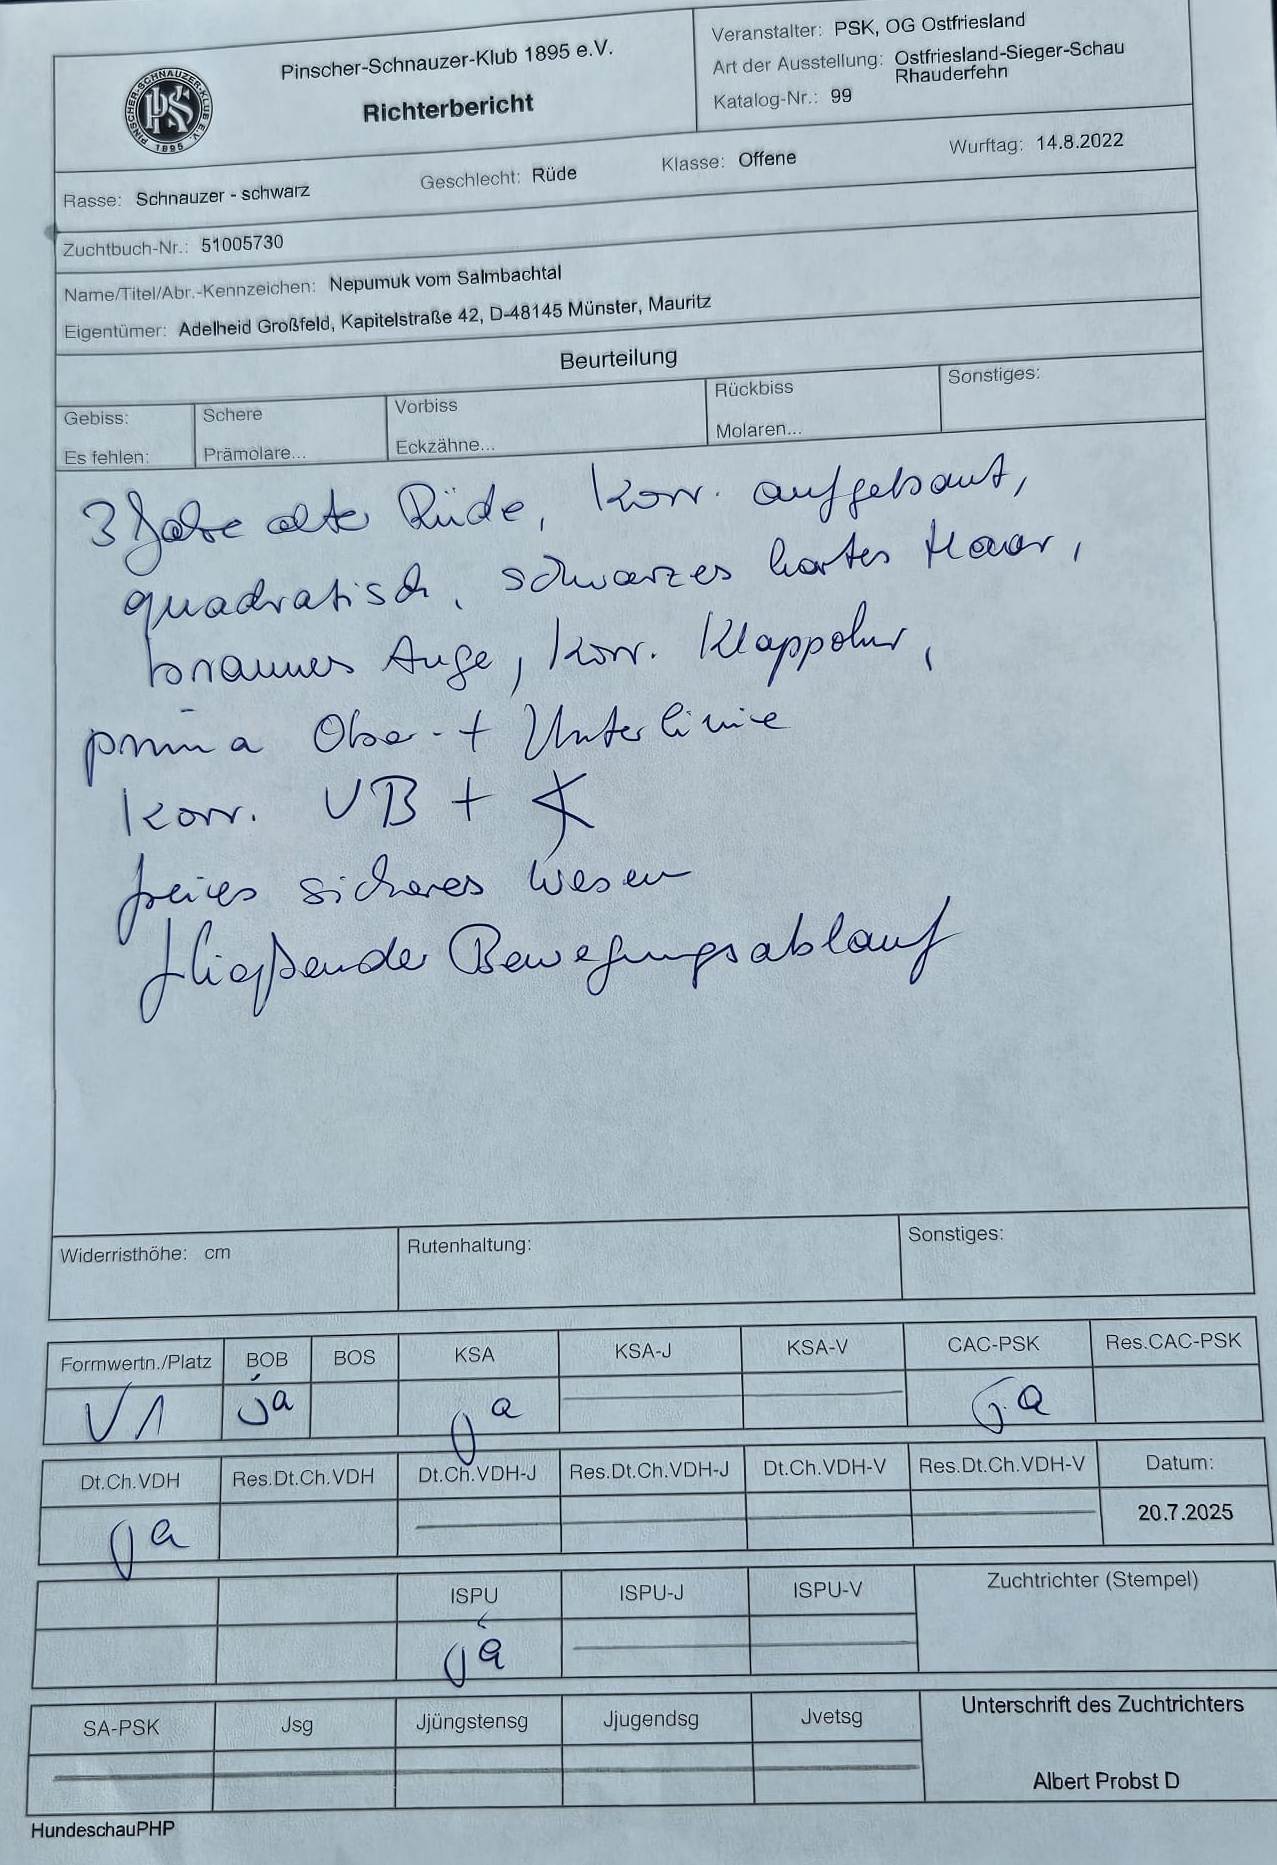 Pinscher-Schnauzer-Klub 1895 e.V.
Richterbericht
PINSCHER-SCHNAUZER-KLUB E.V.
PSK
1895
Veranstalter: PSK, OG Ostfriesland
Art der Ausstellung: Ostfriesland-Sieger-Schau
Rhauderfehn
Katalog-Nr.: 99
Rasse: Schnauzer - schwarz Geschlecht: Rüde Klasse: Offene Wurftag: 14.8.2022
Zuchtbuch-Nr.: 51005730
Name/Titel/Abr.-Kennzeichen: Nepumuk vom Salmbachtal
Eigentümer: Adelheid Großfeld, Kapitelstraße 42, D-48145 Münster, Mauritz
Beurteilung
Gebiss: Schere Vorbiss Rückbiss Sonstiges:
Es fehlen: Prämolare... Eckzähne... Molaren...
3 Jahre alter Rüde, korr. aufgebaut,
quadratisch, schwarzes hartes Haar,
braunes Auge, korr. Klappohr,
prima Ober- + Unterlinie
korr. VB +
freies sicheres Wesen
fließender Bewegungsablauf
Widerristhöhe: cm Rutenhaltung: Sonstiges:
Formwertn./Platz BOB BOS KSA KSA-J KSA-V CAC-PSK Res.CAC-PSK
V1 ja ja ja
Dt.Ch.VDH Res.Dt.Ch.VDH Dt.Ch.VDH-J Res.Dt.Ch.VDH-J Dt.Ch.VDH-V Res.Dt.Ch.VDH-V Datum:
ja 20.7.2025
ISPU ISPU-J ISPU-V Zuchtrichter (Stempel)
ja
SA-PSK Jsg Jjüngstensg Jjugendsg Jvetsg Unterschrift des Zuchtrichters
Albert Probst D
HundeschauPHP